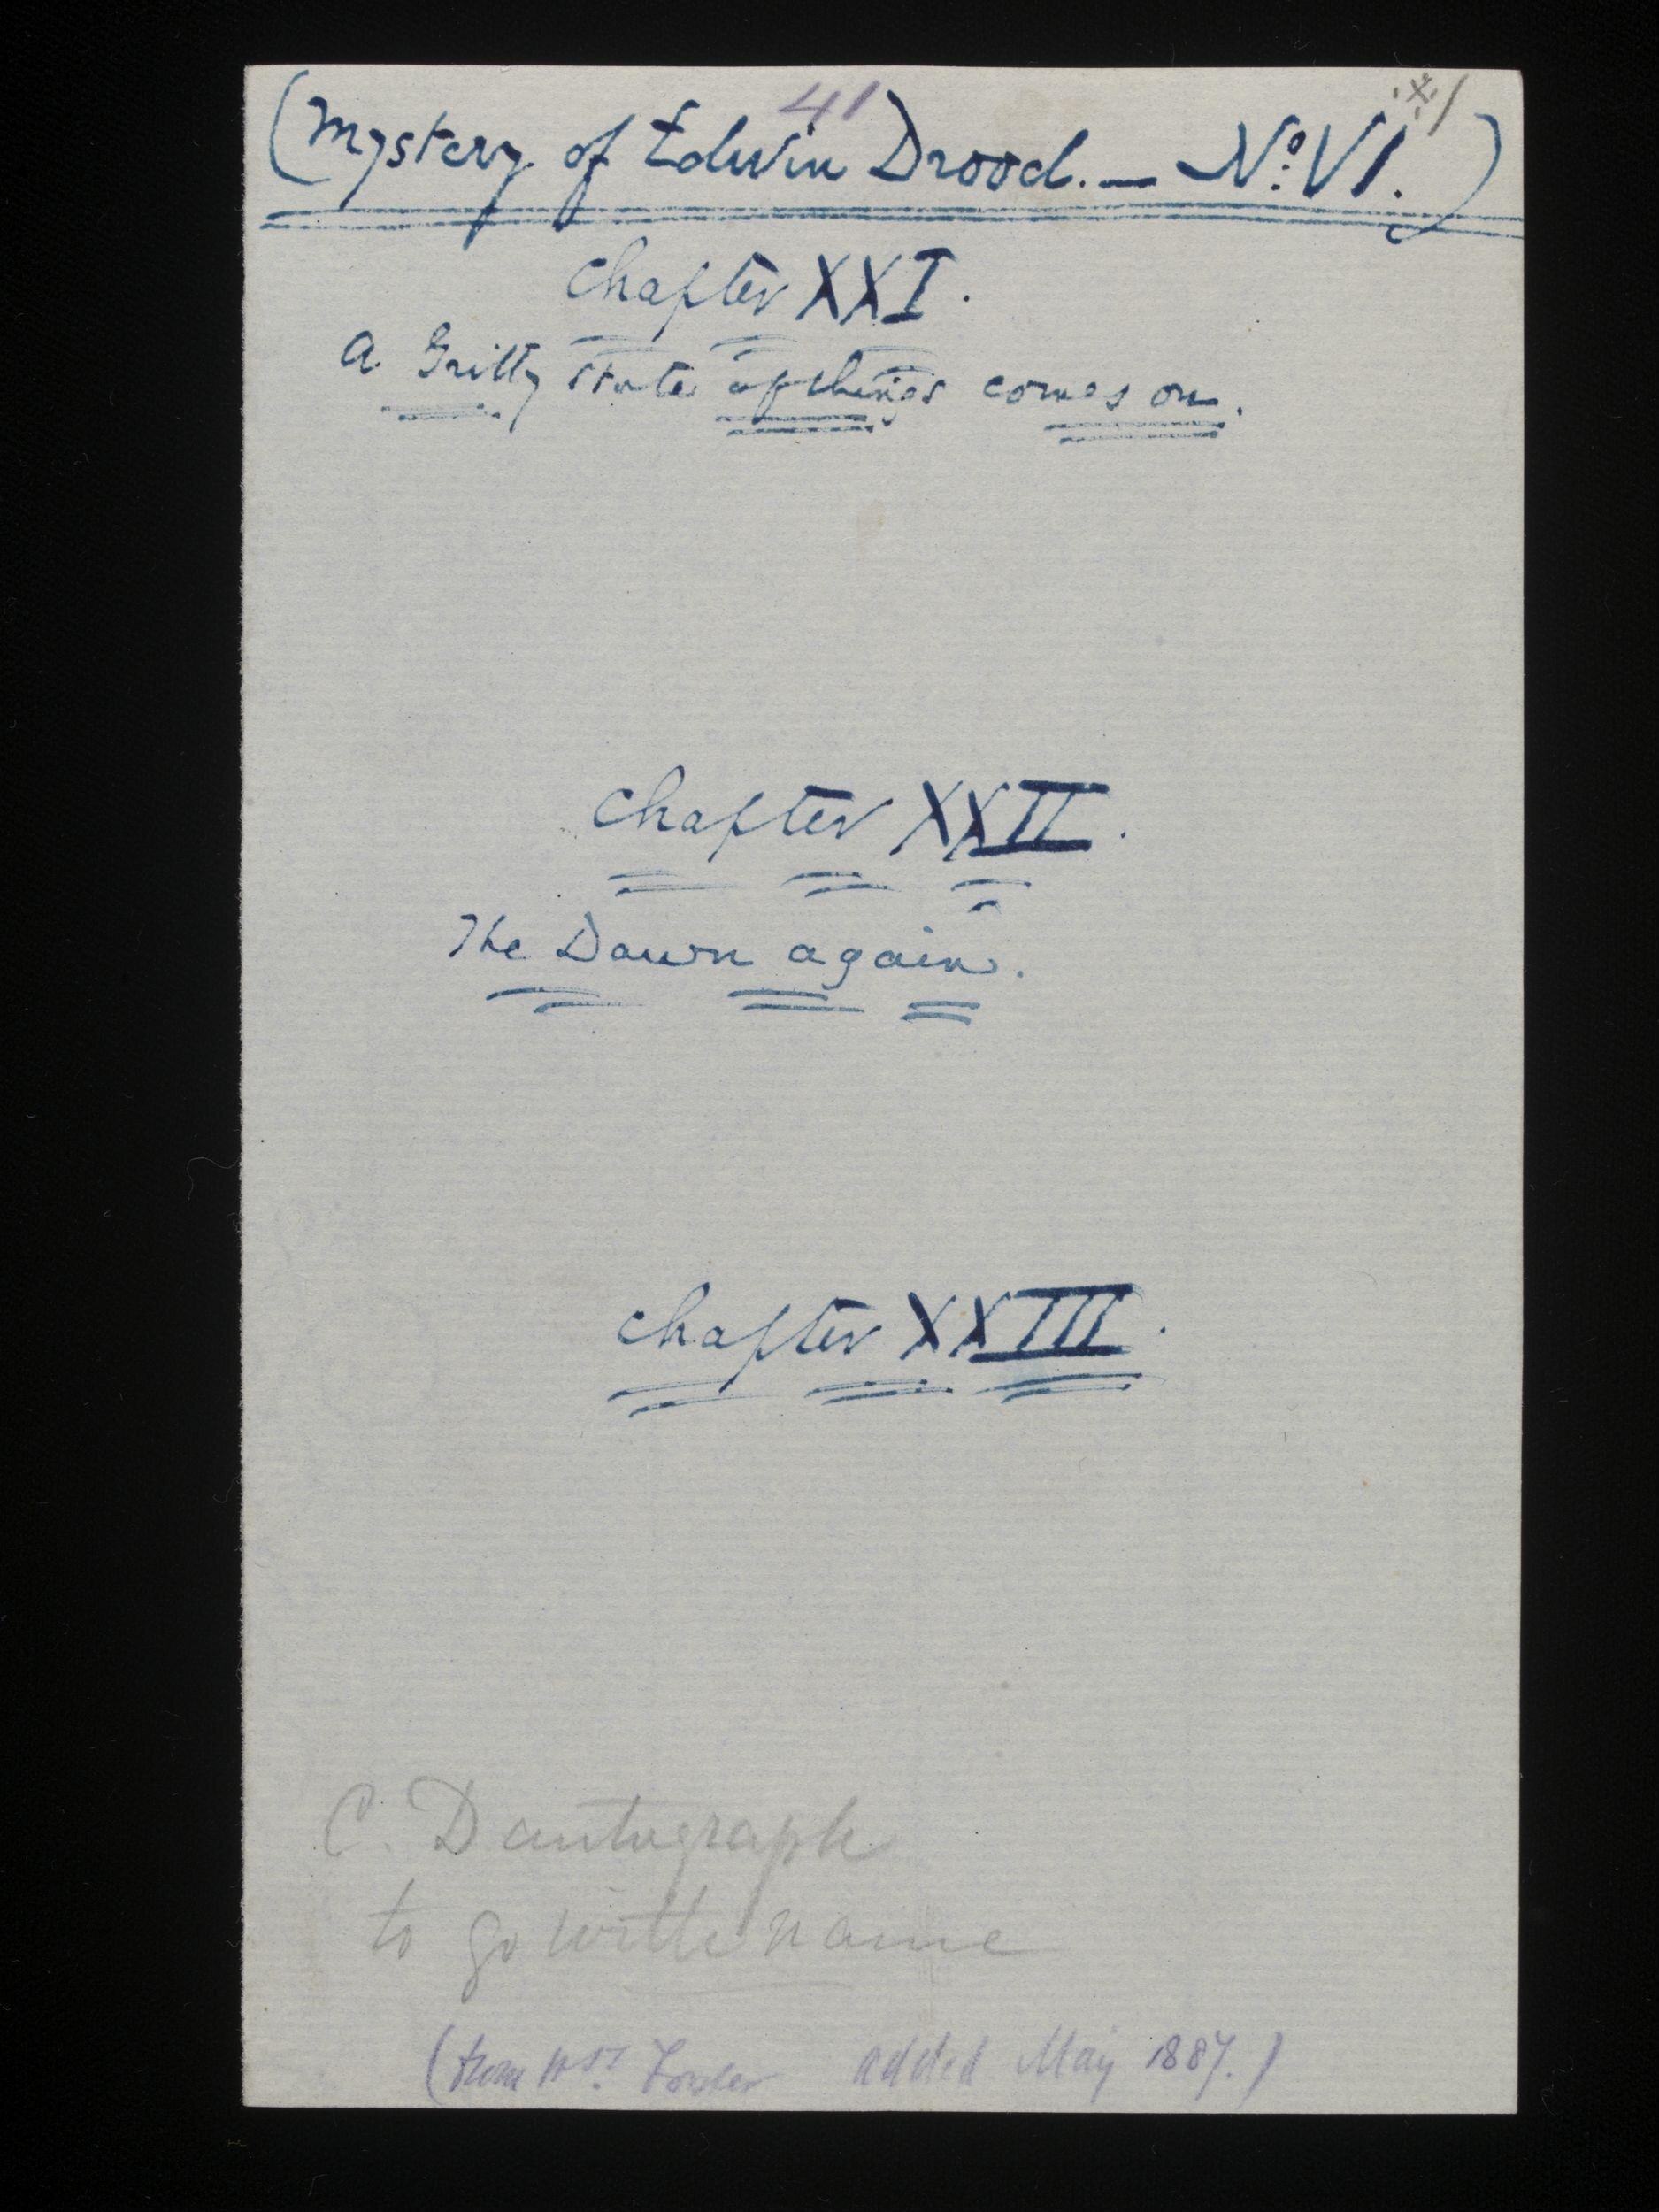 41
(Mystery of Edwin Drood. — No. VI.)
Chapter XXI.
A Gritty state of things comes on.
Chapter XXII.
The Dawn again.
Chapter XXIII.
C. D autograph
to go with name
(from Mrs. Forster added May 1887.)